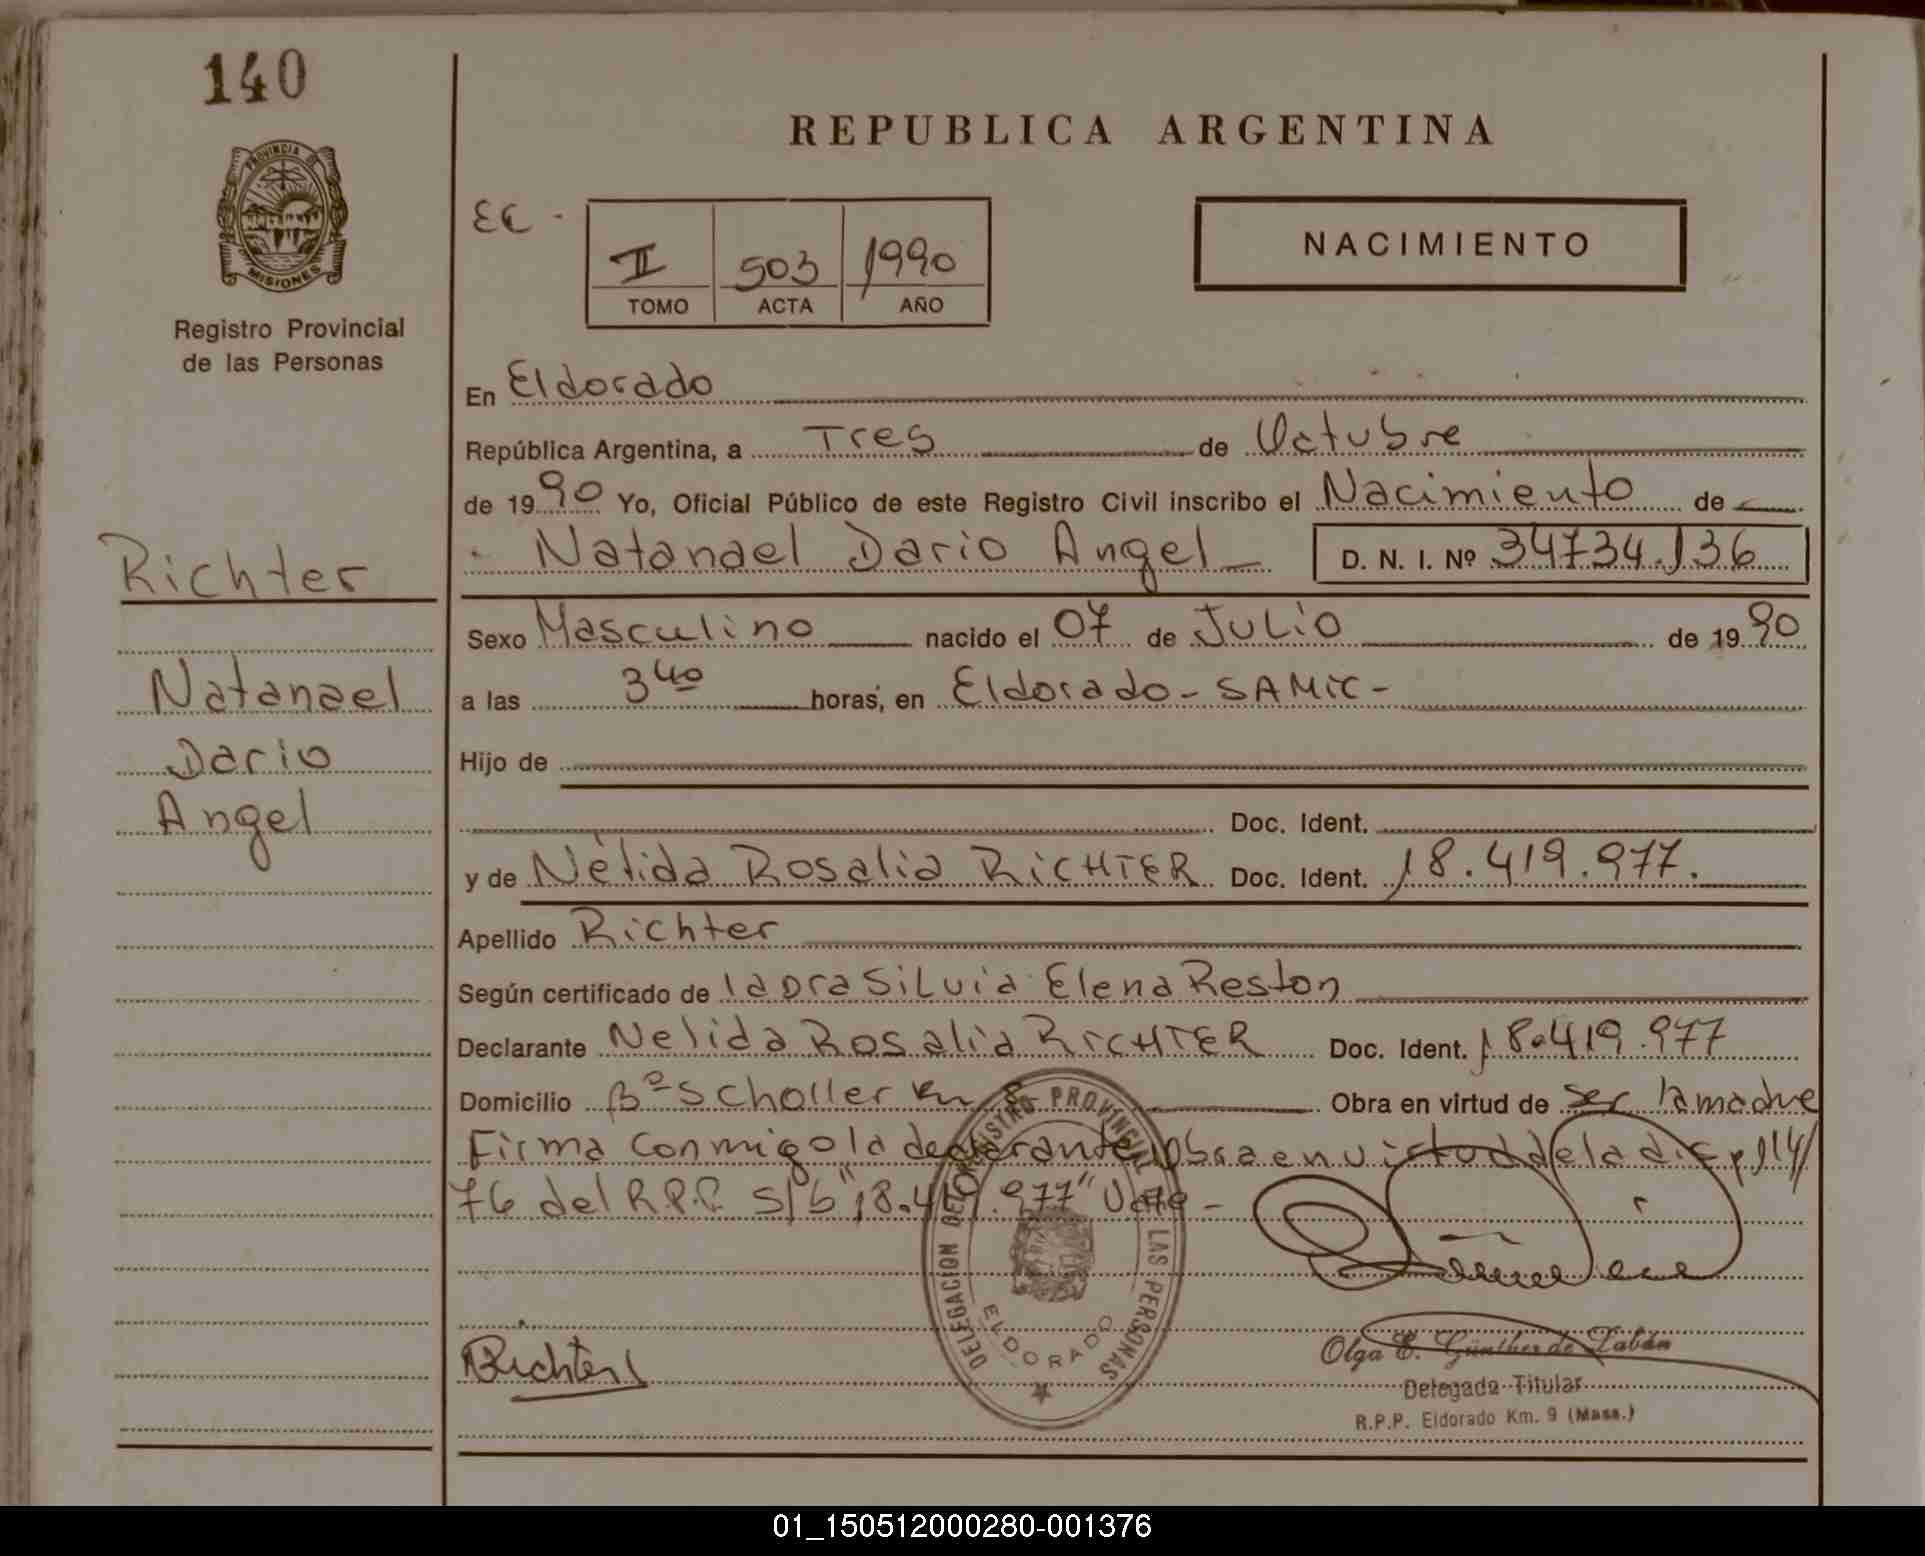 140
REPUBLICA ARGENTINA
PROVINCIA D
MISIONES
Registro Provincial
de las Personas
EC -
II 503 1990
TOMO ACTA AÑO
NACIMIENTO
En Eldorado
República Argentina, a Tres de Octubre
de 1990 Yo, Oficial Público de este Registro Civil inscribo el Nacimiento de
Richter
- Natanael Dario Angel - D. N. I. Nº 34734.136
Sexo Masculino nacido el 07 de Julio de 1990
Natanael
a las 3 40 horas, en Eldorado - SAMIC -
Dario
Hijo de
Angel
Doc. Ident.
y de Nélida Rosalia RICHTER Doc. Ident. 18.419.977.
Apellido Richter
Según certificado de la Dra Silvia Elena Reston
Declarante Nelida Rosalia RICHTER Doc. Ident. 18.419.977
Domicilio Bº Scholler Km 8 Obra en virtud de ser la madre
Firma conmigo la declarante. Obra en virtud de la disp 114/
76 del R.P.P. S/b "18.419.977" Vale -
DELEGACION DEL REGISTRO PROVINCIAL DE LAS PERSONAS
ELDORADO
Richter
Olga E. Günther de Zabán
Delegada Titular
R.P.P. Eldorado Km. 9 (Mnes.)
01_150512000280-001376